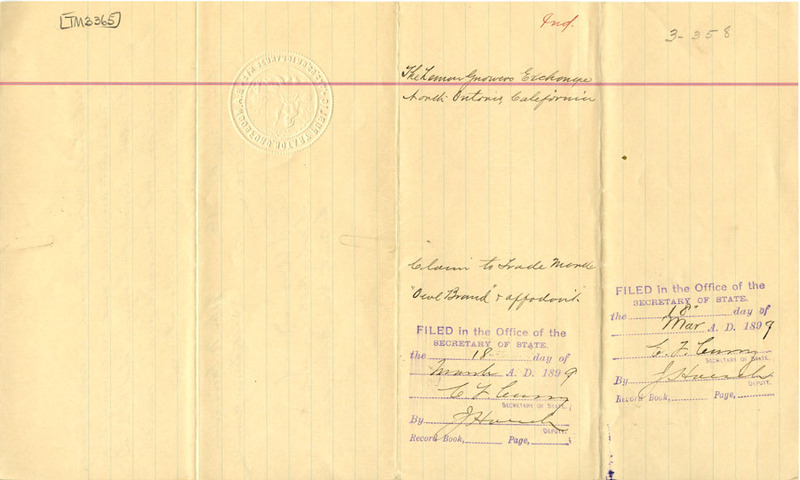 TM3365
Ind.
3-358
The Lemon Growers Exchange
North Ontario, California
Claim to Trade Mark
"Owl Brand" & affadavit
FILED in the Office of the
SECRETARY OF STATE.
the 18 day of
March A. D. 1899
C F Curry
SECRETARY OF STATE.
By J Hoesch
DEPUTY.
Record Book, Page,
FILED in the Office of the
SECRETARY OF STATE.
the 18" day of
Mar A. D. 1899
C. F. Curry
SECRETARY OF STATE.
By J Hoesch
DEPUTY.
Record Book, Page,